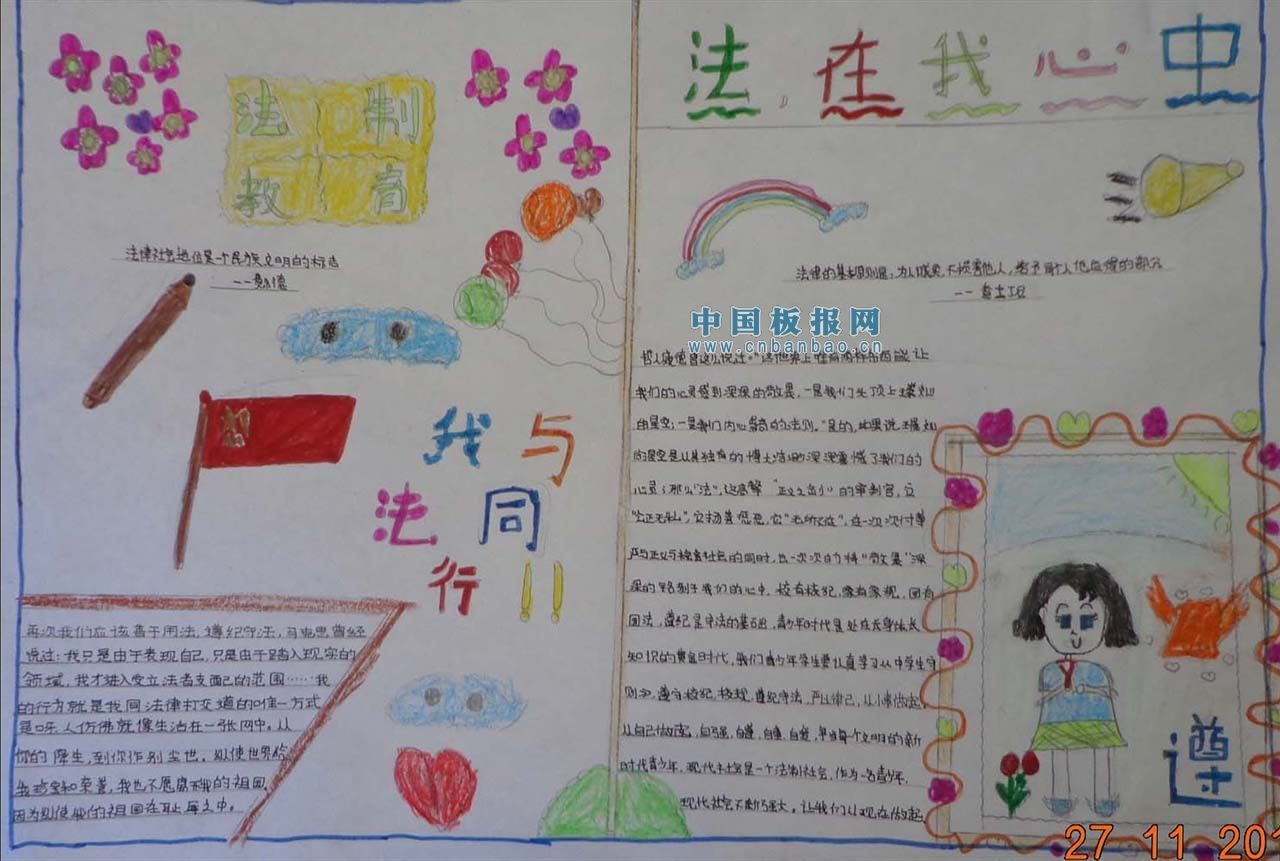 法制
教育
法律社会地位是一个民族文明的标志
我与
法同
行!!
再次我们应该善于用法,遵纪守法,马克思曾经
说过:我只是由于表现自己,只是由于踏入现实的
领域,我才进入受立法者支配的范围……我
的行为就是我同法律打交道的唯一方式
是呀人仿佛就像生活在一张网中。从
你的降生,到你作别尘世。纵使世界给
我珍宝和荣誉,我也不愿离开我的祖国
因为纵使我的祖国在耻辱之中。
法,在我心中
法律的基本原则是:为人诚实,不损害他人,给予每个人他应得的部分
——查士丁尼
中国板报网
www.cnbanbao.cn
哲人康德曾这么说过:“这世界上唯有两样东西能让
我们的心灵感到深深的敬畏,一是我们头顶上璨烂
的星空;一是我们内心崇高的法则。”是的,如果说璨烂
的星空是以其独有的博大浩渺深深震撼了我们的
心灵;那么“法”,这
“公正无私”,它扬善惩恶,它“无所不在”,在一次次付事
严与正义与稳定社会的同时,也一次次的将“敬畏”深
深的铭刻于我们的心中。校有校纪,家有家规,国有
国法,遵纪是守法的基石,青少年时代是处在长身体长
知识的黄金时代,我们青少年学生要认真学习从中学生守
则为,遵守校纪,校规,遵纪守法,严以律己,从小事做起,
从自己做起,自强,自尊,自重,自爱,争当每个文明的新
时代青少年,现代社会是一个法制社会,作为一名青少年,
现代社会不断的强大,让我们从现在做起
遵
27 11 201